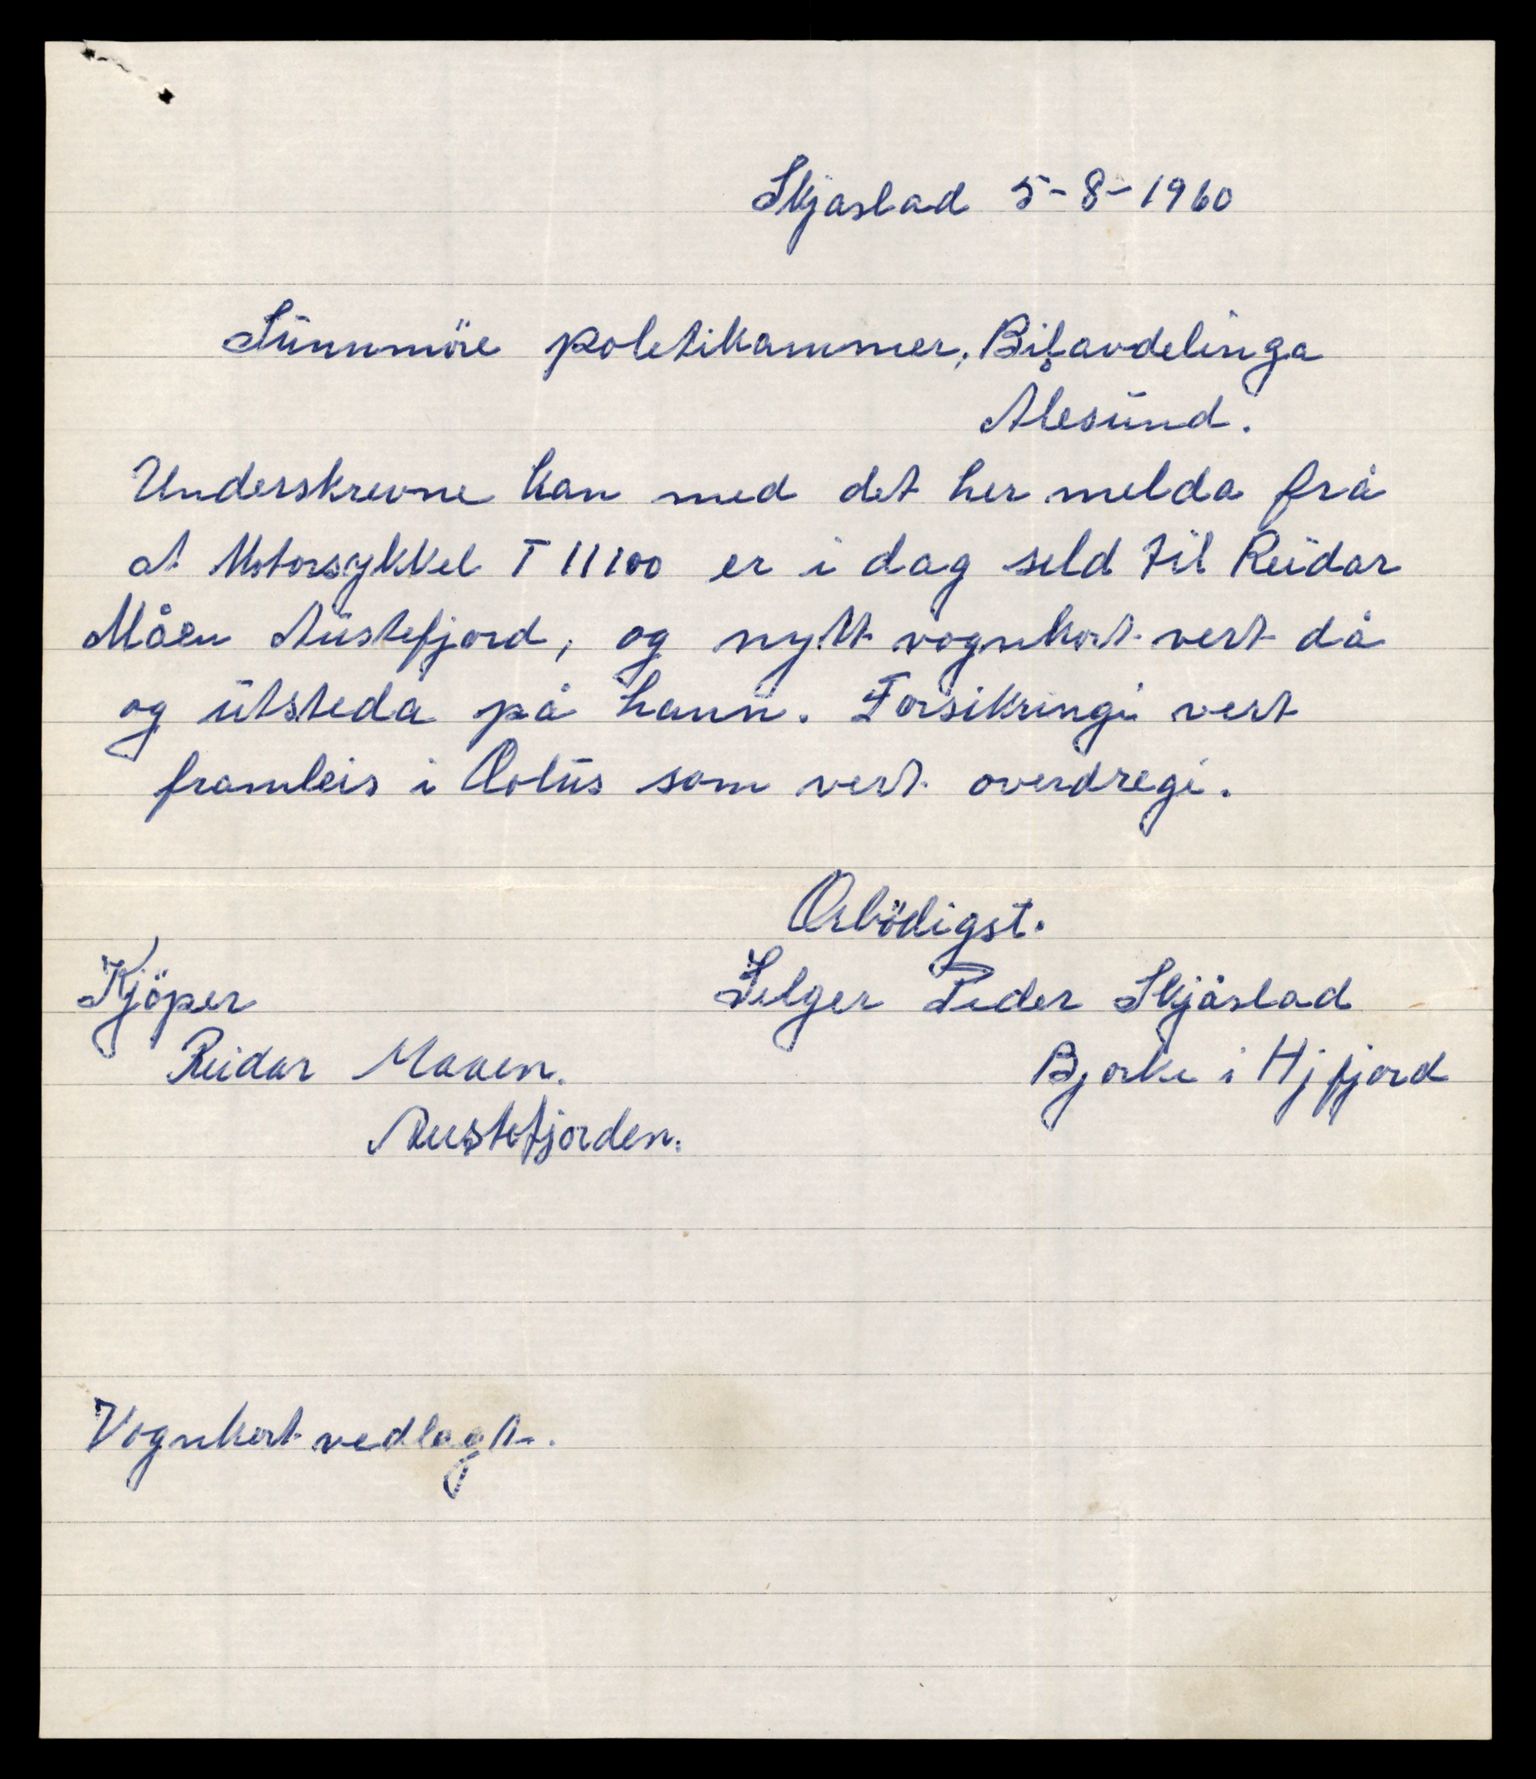 Skjaslad 5-8-1960
Sunnmöre poletikammer, Bilavdelinga
Ålesund.
Underskrevne kan med det her melda frå
at Motorsykkel T 11100 er i dag seld til Reidar
Måen Austefjord, og nytt vognkort vert då
og utsteda på hann. Forsikringi vert
framleis i Æolus som vert overdregi.
Ærbödigst.
Kjöper
Selger Peder Skjåslad
Reidar Maaen.
Bjorke i Hjfjord
Austefjorden.
Vognkort vedlagt.